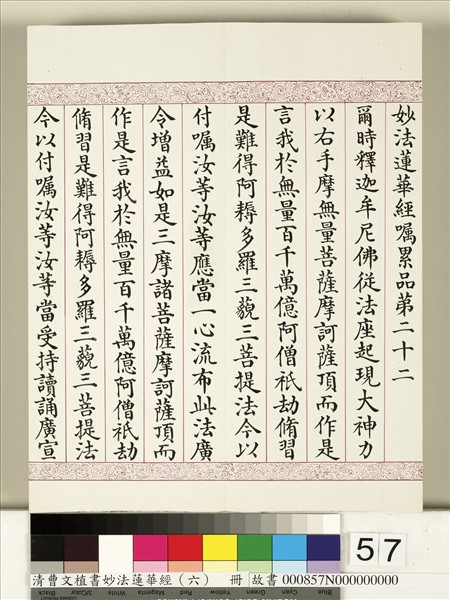 妙法蓮華經囑累品第二十二
爾時釋迦牟尼佛從法座起現大神力
以右手摩無量菩薩摩訶薩頂而作是
言我於無量百千萬億阿僧祇劫脩習
是難得阿耨多羅三藐三菩提法今以
付囑汝等汝等應當一心流布此法廣
令增益如是三摩諸菩薩摩訶薩頂而
作是言我於無量百千萬億阿僧祇劫
脩習是難得阿耨多羅三藐三菩提法
今以付囑汝等汝等當受持讀誦廣宣
57
Blue Cyan Green Yellow Red Magenta White 3/Color Black
清曹文植書妙法蓮華經（六） 冊 故書 000857N000000000